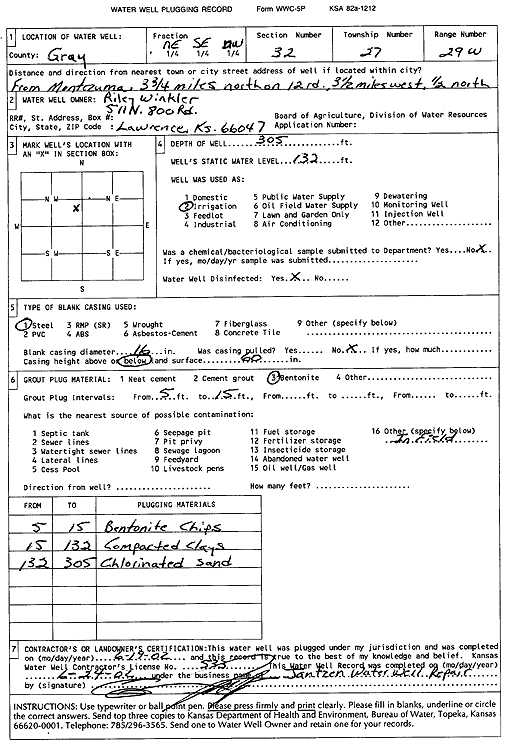 WATER WELL PLUGGING RECORD Form WWC-5P KSA 82a-1212
1 LOCATION OF WATER WELL: Fraction Section Number Township Number Range Number
County: Gray NE 1/4 SE 1/4 NW 1/4 32 27 29W
Distance and direction from nearest town or city street address of well if located within city?
From Montzuma, 3 3/4 miles north on 12 rd, 3 1/2 miles west, 1/2 north
2 WATER WELL OWNER: Riley Winkler
RR#, St. Address, Box #: 511 N. 800 Rd. Board of Agriculture, Division of Water Resources
City, State, ZIP Code : Lawrence, Ks. 66047 Application Number:
3 MARK WELL'S LOCATION WITH AN "X" IN SECTION BOX:
N
NW NE
X
W E
SW SE
S
4 DEPTH OF WELL....305....ft.
WELL'S STATIC WATER LEVEL...132...ft.
WELL WAS USED AS:
1 Domestic 5 Public Water Supply 9 Dewatering
2 Irrigation 6 Oil Field Water Supply 10 Monitoring Well
3 Feedlot 7 Lawn and Garden Only 11 Injection Well
4 Industrial 8 Air Conditioning 12 Other...........
Was a chemical/bacteriological sample submitted to Department? Yes....No.X..
If yes, mo/day/yr sample was submitted..................
Water Well Disinfected: Yes.X.. No......
5 TYPE OF BLANK CASING USED:
1 Steel 3 RMP (SR) 5 Wrought 7 Fiberglass 9 Other (specify below)
2 PVC 4 ABS 6 Asbestos-Cement 8 Concrete Tile ..........................
Blank casing diameter...16...in. Was casing pulled? Yes...... No.X.. If yes, how much........
Casing height above or below land surface.....60.....in.
6 GROUT PLUG MATERIAL: 1 Neat cement 2 Cement grout 3 Bentonite 4 Other...........
Grout Plug Intervals: From..5..ft. to..15..ft., From......ft. to ......ft., From...... to......ft.
What is the nearest source of possible contamination:
1 Septic tank 6 Seepage pit 11 Fuel storage 16 Other (specify below)
2 Sewer lines 7 Pit privy 12 Fertilizer storage In Field
3 Watertight sewer lines 8 Sewage lagoon 13 Insecticide storage
4 Lateral lines 9 Feedyard 14 Abandoned water well
5 Cess Pool 10 Livestock pens 15 Oil well/Gas well
Direction from well? .................... How many feet? ....................
FROM TO PLUGGING MATERIALS
5 15 Bentonite Chips
15 132 Compacted Clays
132 305 Chlorinated Sand
7 CONTRACTOR'S OR LANDOWNER'S CERTIFICATION: This water well was plugged under my jurisdiction and was completed
on (mo/day/year) 6-19-02 and this record is true to the best of my knowledge and belief. Kansas
Water Well Contractor's License No. 533 This Water Well Record was completed on (mo/day/year)
6-24-02 under the business name of Jantzen Water Well Repair
by (signature)
INSTRUCTIONS: Use typewriter or ball point pen. Please press firmly and print clearly. Please fill in blanks, underline or circle
the correct answers. Send top three copies to Kansas Department of Health and Environment, Bureau of Water, Topeka, Kansas
66620-0001. Telephone: 785/296-3565. Send one to Water Well Owner and retain one for your records.